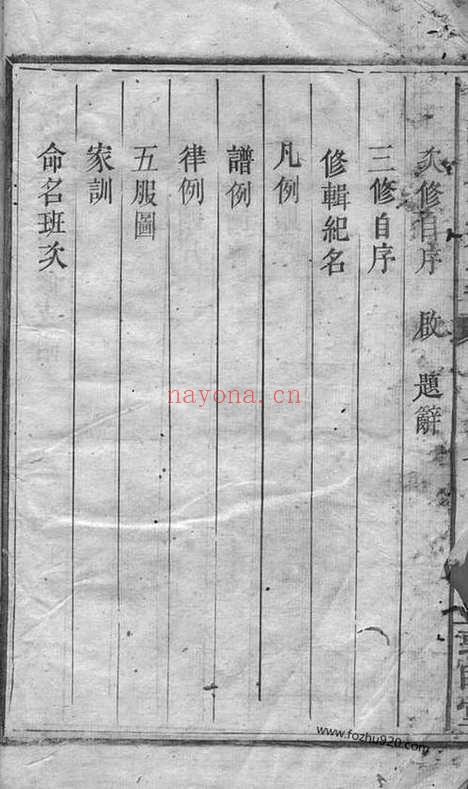 次修自序 啟 題辭
三修自序
修輯紀名
凡例
譜例
律例
五服圖
家訓
命名班次
nayona.cn
www.fozhu920.com